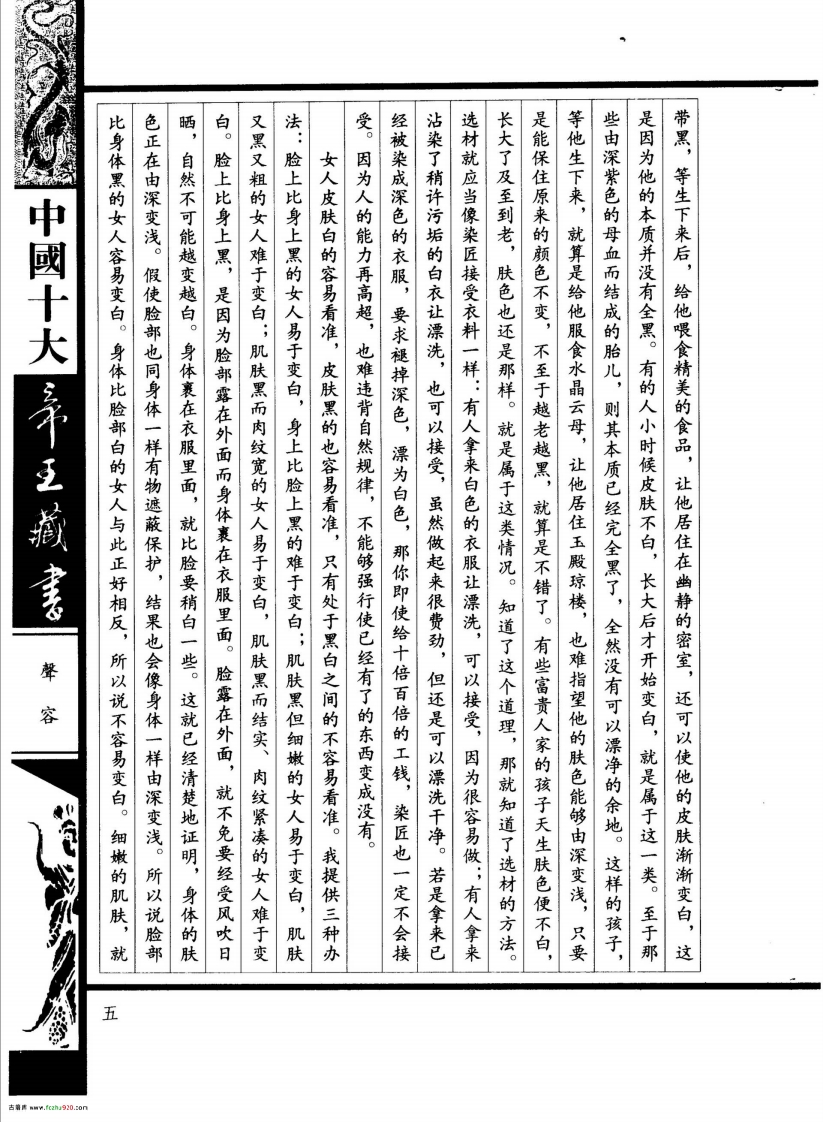 带黑，等生下来后，给他喂食精美的食品，让他居住在幽静的密室，还可以使他的皮肤渐渐变白，这
是因为他的本质并没有全黑。有的人小时候皮肤不白，长大后才开始变白，就是属于这一类。至于那
些由深紫色的母血而结成的胎儿，则其本质已经完全黑了，全然没有可以漂净的余地。这样的孩子，
等他生下来，就算是给他服食水晶云母，让他居住玉殿琼楼，也难指望他的肤色能够由深变浅，只要
是能保住原来的颜色不变，不至于越老越黑，就算是不错了。有些富贵人家的孩子天生肤色便不白，
长大了及至到老，肤色也还是那样。就是属于这类情况。知道了这个道理，那就知道了选材的方法。
选材就应当像染匠接受衣料一样：有人拿来白色的衣服让漂洗，可以接受，因为很容易做；有人拿来
沾染了稍许污垢的白衣让漂洗，也可以接受，虽然做起来很费劲，但还是可以漂洗干净。若是拿来已
经被染成深色的衣服，要求褪掉深色，漂为白色，那你即使给十倍百倍的工钱，染匠也一定不会接
受。因为人的能力再高超，也难违背自然规律，不能够强行使已经有了的东西变成没有。
女人皮肤白的容易看准，皮肤黑的也容易看准，只有处于黑白之间的不容易看准。我提供三种办
法：脸上比身上黑的女人易于变白，身上比脸上黑的难于变白；肌肤黑但细嫩的女人易于变白，肌肤
又黑又粗的女人难于变白；肌肤黑而肉纹宽的女人易于变白，肌肤黑而结实、肉纹紧凑的女人难于变
白。脸上比身上黑，是因为脸部露在外面而身体裹在衣服里面。脸露在外面，就不免要经受风吹日
晒，自然不可能越变越白。身体裹在衣服里面，就比脸要稍白一些。这就已经清楚地证明，身体的肤
色正在由深变浅。假使脸部也同身体一样有物遮蔽保护，结果也会像身体一样由深变浅。所以说脸部
比身体黑的女人容易变白。身体比脸部白的女人与此正好相反，所以说不容易变白。细嫩的肌肤，就
中國十大
帝王藏書
聲容
五
古籍库 www.fczhu920.com